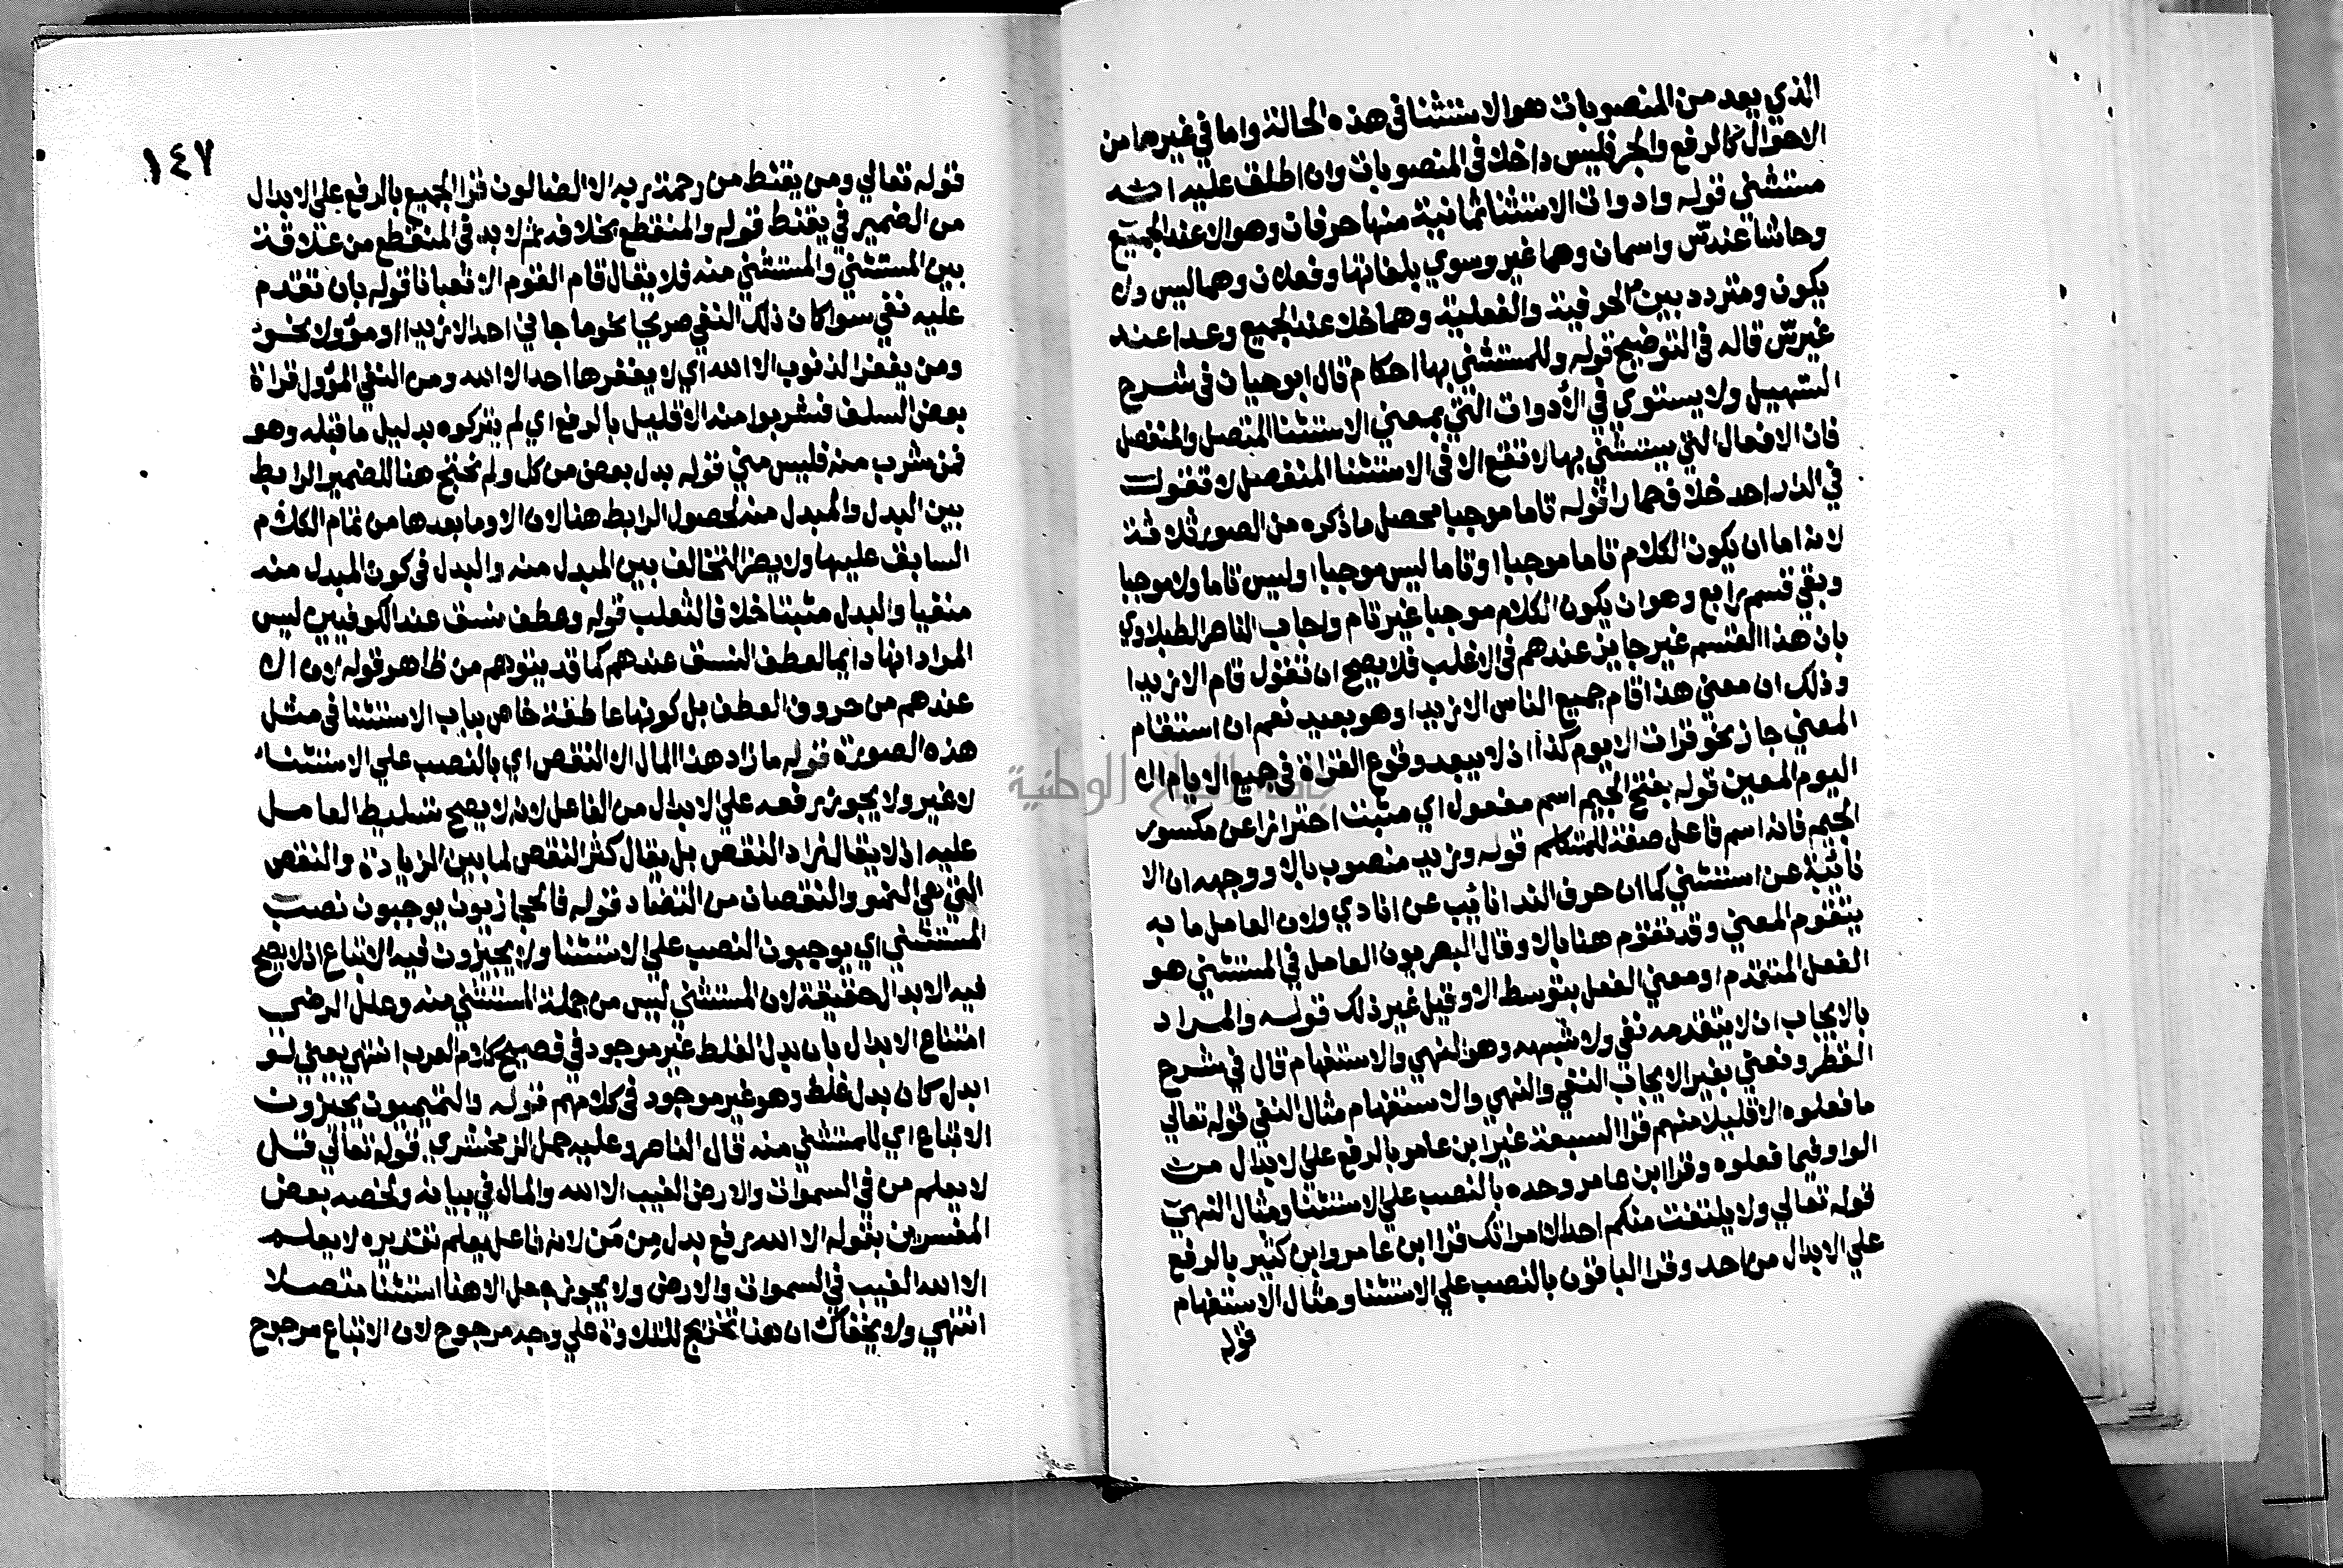 الذي يعد من المنصوبات هو الاستثنا في هذه الحالة واما في غيرها من
الاحوال كالرفع والجر فليس داخلا في المنصوبات وان اطلق عليه انه
مستثنى قوله وادوات الاستثنا ثمانية منها حرفان وهو الا عند الجميع
وحاشا عند س واسمان وهما غير وسوي بلغاتها وفعلان وهما ليس ولا
يكون ومتردد بين الحرفية والفعلية وهما خلا عند الجميع وعدا عند
غير س قاله في التوضيح قوله وللمستثنى بها احكام قال ابو حيان في شرح
التسهيل ولا يستوي في الأدوات التي بمعني الاستثنا المتصل والمنفصل
فان الافعال التي يستثني بها لا تقع الا في الاستثنا المتفصل لا تقول
في الدار احد خلا حمارا قوله تاما موجبا محصل ما ذكره من الصور ثلاثة
لانه اما ان يكون الكلام تاما موجبا او تاما ليس موجبا او ليس تاما ولا موجبا
وبقي قسم رابع وهو ان يكون الكلام موجبا غير تام واجاب الناصر الطبلاوي
بان هذا القسم غير جايز عندهم في الاغلب فلا يصح ان تقول قام الا زيدا
وذلك ان معني هذا قام جميع الناس الا زيدا وهو بعيد نعم ان استقام
المعني جاز نحو قرات الا يوم كذا اذ لا يبعد وقوع القراة في جميع الايام الا
اليوم المعين قوله بفتح الجيم اسم مفعول اي مثبت احترازا عن مكسور
الجيم فانه اسم فاعل صفة للمتكلم قوله وزيد منصوب بالا ووجهه ان الا
نائبة عن استثني كما ان حرف الندا نائب عن انادي ولان العامل ما به
يتقوم المعني وقد تقوم هنا بالا وقال البصريون العامل في المستثني هو
الفعل المتقدم او معني الفعل بتوسط الا وقيل غير ذلك قوله والمراد
بالايجاب ان لا يتقدمه نفي ولا شبهه وهو النهي والاستفهام قال في شرح
القطر ونعني بغير الايجاب النفي والنهي والاستفهام مثال النفي قوله تعالي
ما فعلوه الا قليلا منهم قرا السبعة غير ابن عامر بالرفع علي الابدال من
الواو في ما فعلوه وقرا ابن عامر وحده بالنصب علي الاستثنا ومثال النهي
قوله تعالي ولا يلتفت منكم احد الا امراتك قرا ابن عامر وابن كثير بالرفع
علي الابدال من احد وقرا الباقون بالنصب علي الاستثنا ومثال الاستفهام
قوله
١٤٧
قوله تعالي ومن يقنط من رحمة ربه الا الضالون قرا الجميع بالرفع علي الابدال
من الضمير في يقنط قوله والمنقطع بخلافه ثم لا بد في المنقطع من علاقة
بين المستثني والمستثني منه فلا يقال قام القوم الا ثعبانا قوله بان تقدم
عليه نفي سوا كان ذلك النفي صريحا نحو ما جاني احد الا زيدا او مؤولا نحو
ومن يغفر الذنوب الا الله اي لا يغفرها احد الا الله ومن النفي المؤول قراة
بعض السلف فشربوا منه الا قليل بالرفع اي لم يتركوه بدليل ما قبله وهو
فمن شرب منه فليس مني قوله بدل بعض من كل ولم يحتج هنا للضمير الرابط
بين البدل والمبدل منه لحصول الرابط هنا لان الا وما بعدها من تمام الكلام
السابق عليها ولا يضر التخالف بين المبدل منه والبدل في كون المبدل منه
منفيا والبدل مثبتا خلافا لثعلب قوله وعطف نسق عند الكوفيين ليس
المراد انها دايما لعطف النسق عندهم كما قد يتوهم من ظاهر قوله لان الا
عندهم من حروف العطف بل كونها عاطفة خاص بباب الاستثنا في مثل
هذه الصورة قوله ما زاد هذا المال الا النقص اي بالنصب علي الاستثناء
لا غير ولا يجوز رفعه علي الابدال من الفاعل لانه لا يصح تسليط العامل
عليه اذ لا يقال زاد النقص بل يقال كثر النقص لما بين الزيادة والنقص
التي هي النمو والنقصان من التضاد قوله فالحجازيون يوجبون نصب
المستثني اي يوجبون النصب علي الاستثنا ولا يجيزون فيه الاتباع اذ لا يصح
فيه الابدال حقيقة لان المستثني ليس من جملة المستثني منه وعلل الرضي
امتناع الابدال بان بدل الغلط غير موجود في فصيح كلام العرب انتهي يعني لو
ابدل كان بدل غلط وهو غير موجود في كلامهم قوله والتميميون يجيزون
الاتباع اي للمستثني منه قال الناصر وعليه حمل الزمخشري قوله تعالي قل
لا يعلم من في السموات والارض الغيب الا الله والمال في بيانه ولخصه بعض
المفسرين بقوله الا الله رفع بدل مِن مَن لانه فاعل يعلم تقديره لا يعلم
الا الله الغيب في السموات والارض ولا يجوز جعل الا هنا استثنا متصلا
انتهي ولا يخفاك ان هذا تخريج للتلاوة علي وجه مرجوح لان الاتباع مرجوح